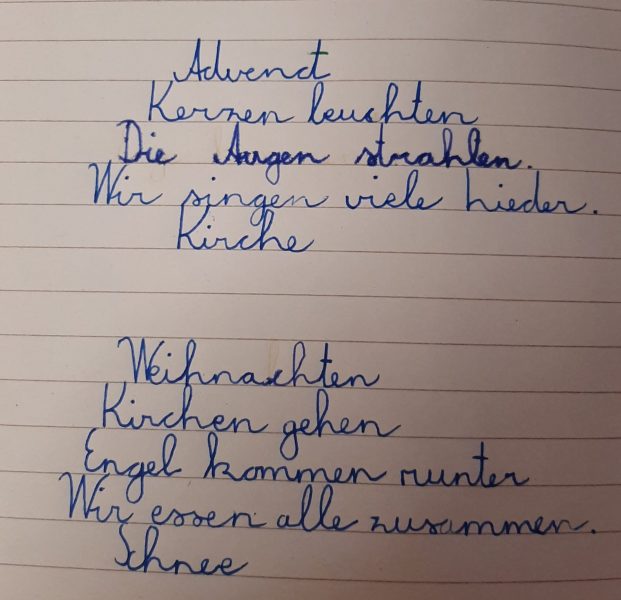 Advenct
Kerzen leuchten
Die Augen strahlen.
Wir singen viele Lieder.
Kirche
Weihnachten
Kirchen gehen
Engel kommen runter
Wir essen alle zusammen.
Schnee